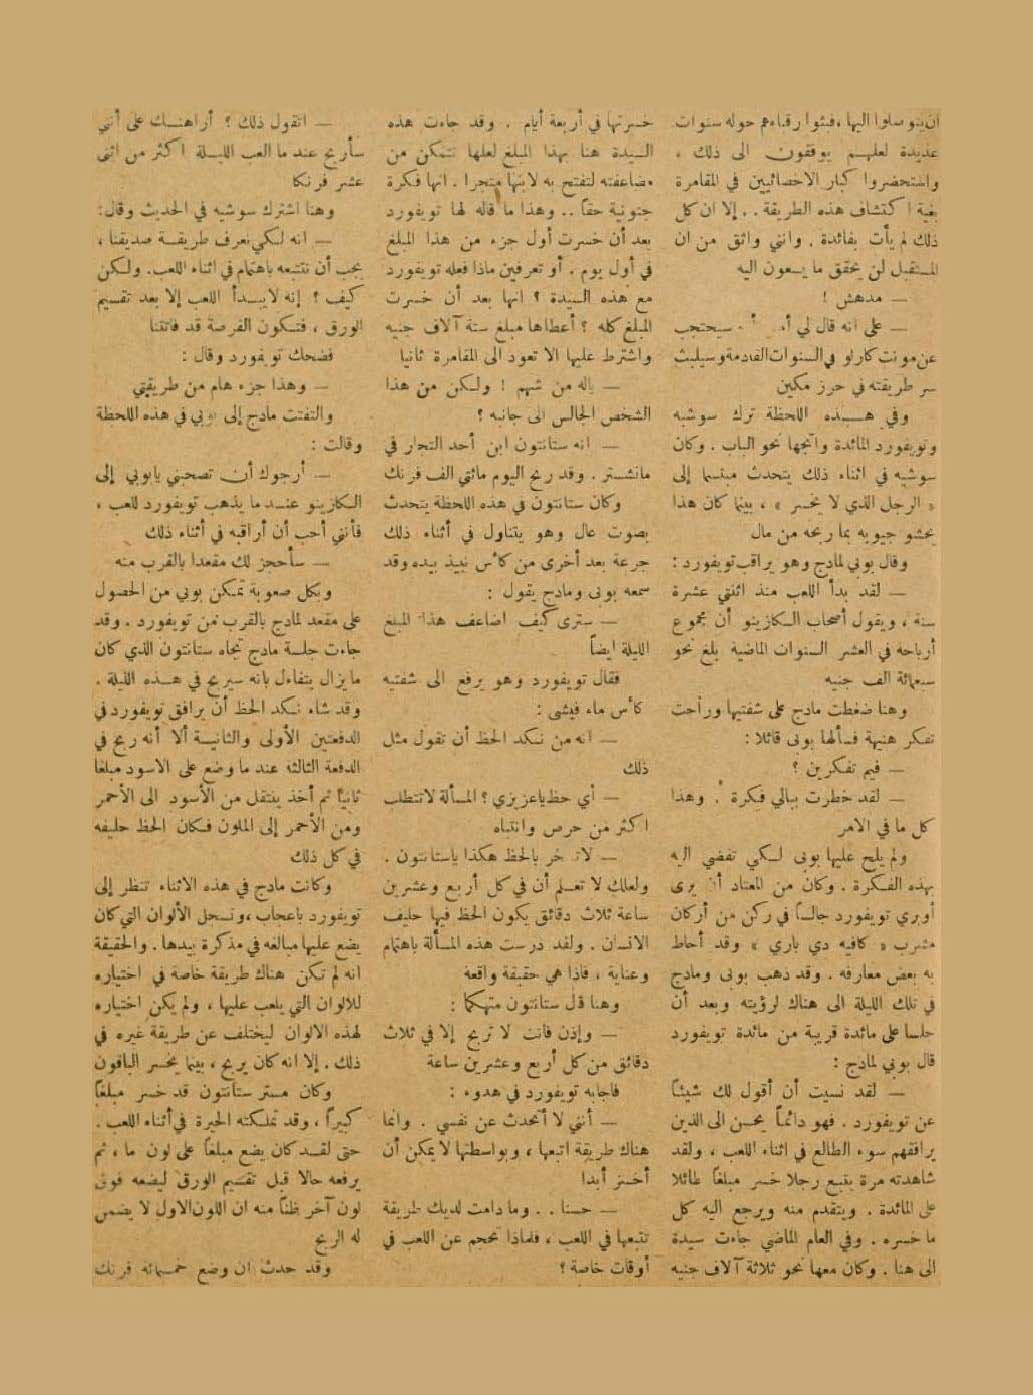 ان يتوسلوا اليها ، فبثوا رقباءهم حوله سنوات
عديدة لعلهم يوفقون الى ذلك ،
واستحضروا كبار الاخصائيين في المقامرة
بغية اكتشاف هذه الطريقة . . إلا ان كل
ذلك لم يأت بفائدة . وانني واثق من ان
المستقبل لن يحقق ما يسعون اليه
— مدهش !
— على انه قال لي سيحتجب
عن مونت كارلو في السنوات القادمة وسيلبث
سر طريقته في حرز مكين
وفي هذه اللحظة ترك سوشيه
وتويفورد المائدة واتجها نحو الباب . وكان
سوشيه في اثناء ذلك يتحدث مبتسما إلى
« الرجل الذي لا يخسر » ، بينما كان هذا
يحشو جيوبه بما ربحه من مال
وقال بوبي لمادج وهو يراقب تويفورد :
— لقد بدأ اللعب منذ اثنتي عشرة
سنة ، ويقول أصحاب الكازينو أن مجموع
أرباحه في العشر السنوات الماضية بلغ نحو
سبعمائة الف جنيه
وهنا ضغطت مادج على شفتيها وراحت
تفكر هنيهة فسألها بوبى قائلا :
— فيم تفكرين ؟
— لقد خطرت ببالي فكرة . وهذا
كل ما في الامر
ولم يلح عليها بوبى لكي تفضي اليه
بهذه الفكرة . وكان من المعتاد أن يرى
أوبري تويفورد جالساً في ركن من أركان
مشرب « كافيه دي باري » وقد أحاط
به بعض معارفه . وقد ذهب بوبى ومادج
في تلك الليلة الى هناك لرؤيته وبعد أن
جلسا على مائدة قريبة من مائدة تويفورد
قال بوبي لمادج :
— لقد نسيت أن أقول لك شيئاً
عن تويفورد . فهو دائماً يحسن الى الذين
يرافقهم سوء الطالع في اثناء اللعب ، ولقد
شاهدته مرة يتبع رجلا خسر مبلغاً طائلا
على المائدة . ويتقدم منه ويرجع اليه كل
ما خسره . وفي العام الماضي جاءت سيدة
الى هنا . وكان معها نحو ثلاثة آلاف جنيه
خسرتها في أربعة أيام . وقد جاءت هذه
السيدة هنا بهذا المبلغ لعلها تتمكن من
مضاعفته لتفتح به لابنها متجرا . انها فكرة
جنونية حقاً . . وهذا ما قاله لها تويفورد
بعد أن خسرت أول جزء من هذا المبلغ
في أول يوم . أو تعرفين ماذا فعله تويفورد
مع هذه السيدة ؟ انها بعد أن خسرت
المبلغ كله ؟ أعطاها مبلغ ستة آلاف جنيه
واشترط عليها الا تعود الى المقامرة ثانيا
— ياله من شهم ! ولكن من هذا
الشخص الجالس الى جانبه ؟
— انه ستانتون ابن أحد التجار في
مانشستر . وقد ربح اليوم مائتي الف فرنك
وكان ستانتون في هذه اللحظة يتحدث
بصوت عال وهو يتناول في أثناء ذلك
جرعة بعد أخرى من كأس نبيذ بيده وقد
سمعه بوبى ومادج يقول :
— سترى كيف اضاعف هذا المبلغ
الليلة ايضاً
فقال تويفورد وهو يرفع الى شفتيه
كأس ماء فيشى :
— انه من نكد الحظ أن تقول مثل
ذلك
— أي حظ ياعزيزي ؟ المسألة لا تتطلب
اكثر من حرص وانتباه
— لا تسخر بالحظ هكذا ياستانتون .
ولعلك لا تعلم أن في كل أربع وعشرين
ساعة ثلاث دقائق يكون الحظ فيها حليف
الانسان . ولقد درست هذه المسألة باهتمام
وعناية ، فاذا هي حقيقة واقعة
وهنا قال ستانتون متهكما :
— وإذن فانت لا تربح إلا في ثلاث
دقائق من كل أربع وعشرين ساعة
فاجابه تويفورد في هدوء :
— أنني لا أتحدث عن نفسي . وانما
هناك طريقة اتبعها ، وبواسطتها لا يمكن أن
أخسر أبدا
— حسنا . . وما دامت لديك طريقة
تتبعها في اللعب ، فلماذا تحجم عن اللعب في
أوقات خاصة ؟
— اتقول ذلك ؟ أراهنك على أنني
سأربح عند ما العب الليلة اكثر من اثنى
عشر فرنكا
وهنا اشترك سوشيه في الحديث وقال :
— انه لكي نعرف طريقة صديقنا ،
يجب أن نتتبعه باهتمام في اثناء اللعب . ولكن
كيف ؟ إنه لا يبدأ اللعب إلا بعد تقسيم
الورق ، فتكون الفرصة قد فاتتنا
فضحك تويفورد وقال :
— وهذا جزء هام من طريقتي
والتفتت مادج إلى بوبي في هذه اللحظة
وقالت :
— أرجوك أن تصحبني يابوبي إلى
الكازينو عند ما يذهب تويفورد للعب ،
فأنني أحب أن أراقبه في أثناء ذلك
— سأحجز لك مقعدا بالقرب منه
وبكل صعوبة تمكن بوبي من الحصول
على مقعد لمادج بالقرب من تويفورد . وقد
جاءت جلسة مادج تجاه ستانتون الذي كان
ما يزال يتفاءل بانه سيربح في هذه الليلة .
وقد شاء نكد الحظ أن يرافق تويفورد في
الدفعتين الأولى والثانية ألا أنه ربح في
الدفعة الثالثة عند ما وضع على الاسود مبلغا
ثانياً ثم أخذ ينتقل من الأسود الى الأحمر
ومن الأحمر إلى الملون فكان الحظ حليفه
في كل ذلك
وكانت مادج في هذه الاثناء تنظر إلى
تويفورد باعجاب ، وتسجل الألوان التي كان
يضع عليها مبالغه في مذكرة بيدها . والحقيقة
انه لم تكن هناك طريقة خاصة في اختياره
للالوان التي يلعب عليها ، ولم يكن اختياره
لهذه الالوان ليختلف عن طريقة غيره في
ذلك . إلا انه كان يربح ، بينما يخسر الباقون
وكان مستر ستانتون قد خسر مبلغاً
كبيراً ، وقد تملكته الحيرة في أثناء اللعب .
حتى لقد كان يضع مبلغاً على لون ما ، ثم
يرفعه حالا قبل تقسيم الورق ليضعه فوق
لون آخر ظناً منه ان اللون الاول لا يضمن
له الربح
وقد حدث ان وضع خمسمائه فرنك